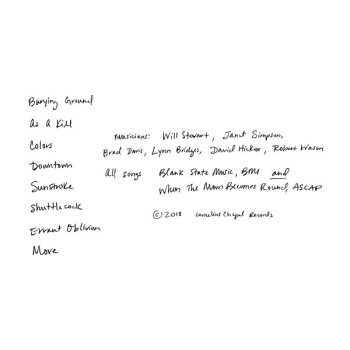 Burying Ground
As A Kill
Colors
Downtown
Sunstroke
Shuttlecock
Errant Oblivion
Move
musicians: Will Stewart, Janet Simpson,
Brad Davis, Lynn Bridges, David Hickox, Robert Wason
All songs Blank State Music, BMI and
When The Moon Becomes Round, ASCAP
© 2018 Cornelius Chapel Records